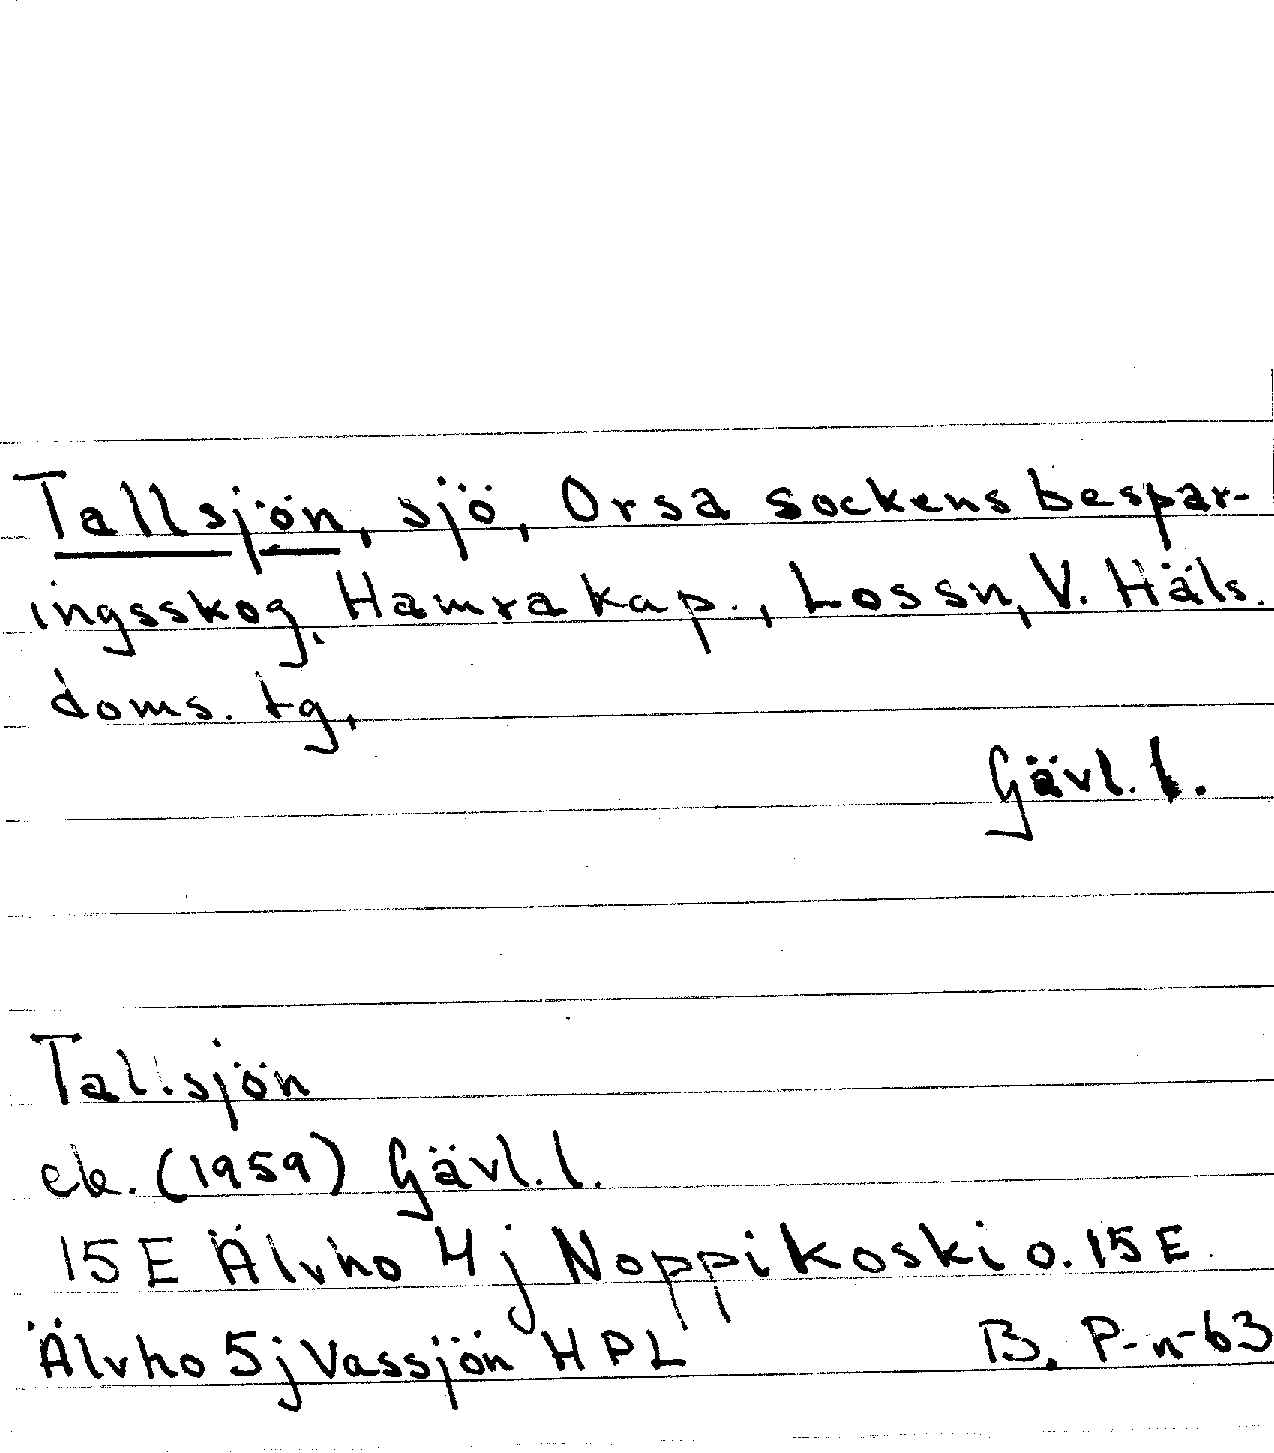 Tallsjön, sjö, Orsa sockens bespar-
ingsskog, Hamra kap., Lossn, V. Häls.
doms. tg,
Gävl. l.
Tallsjön
ek. (1959) Gävl. l.
15 E Älvho 4 j Noppikoski o. 15 E
Älvho 5 j Vassjön HPL B. P-n-63